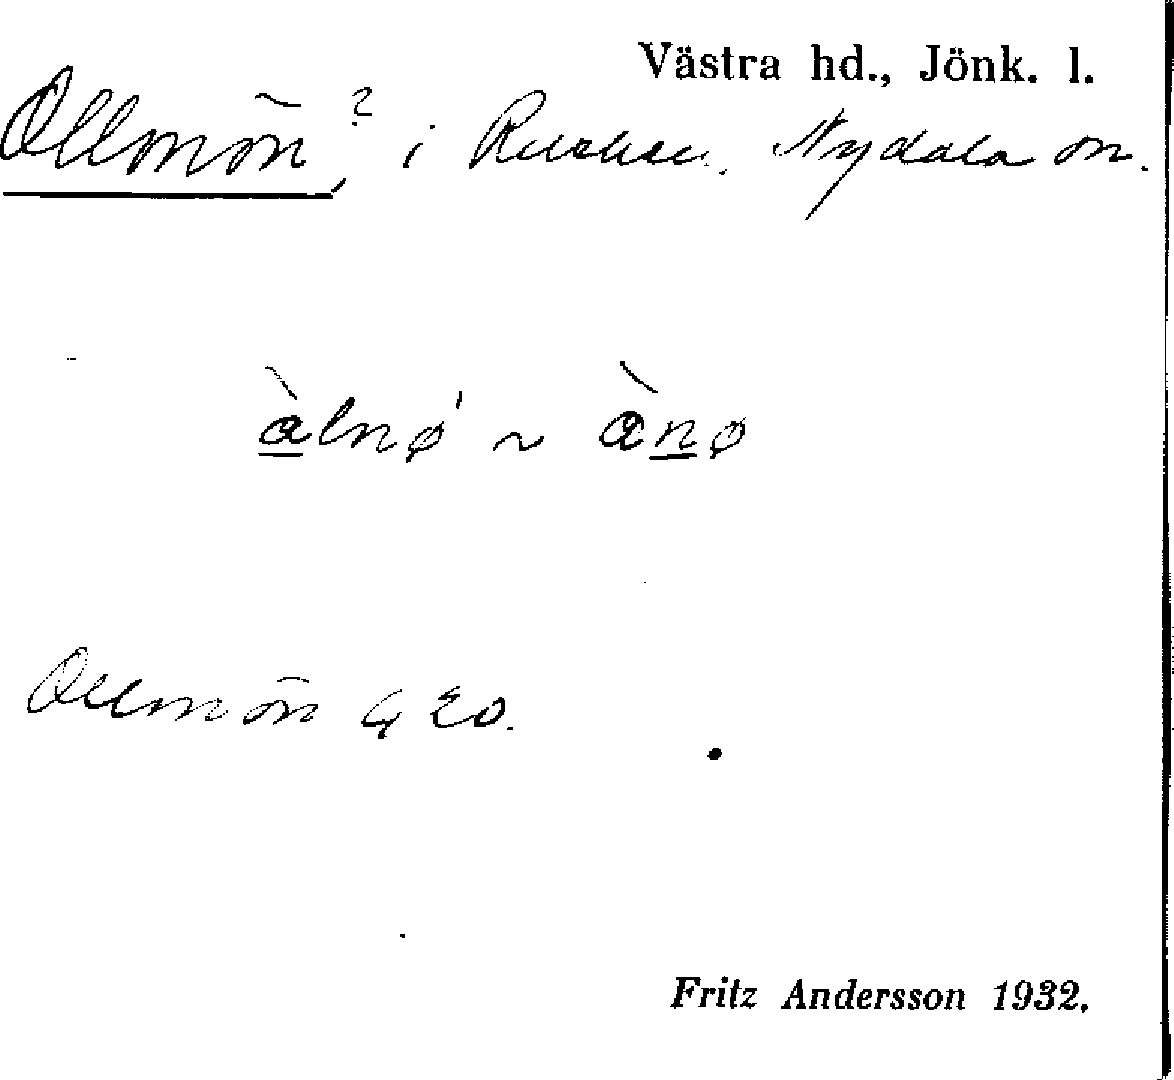 Västra hd., Jönk. l.
Ollmön,? i Rusken. Nydala sn.
àlnø ~ ànø
Ollmön G Eo.
Fritz Andersson 1932.